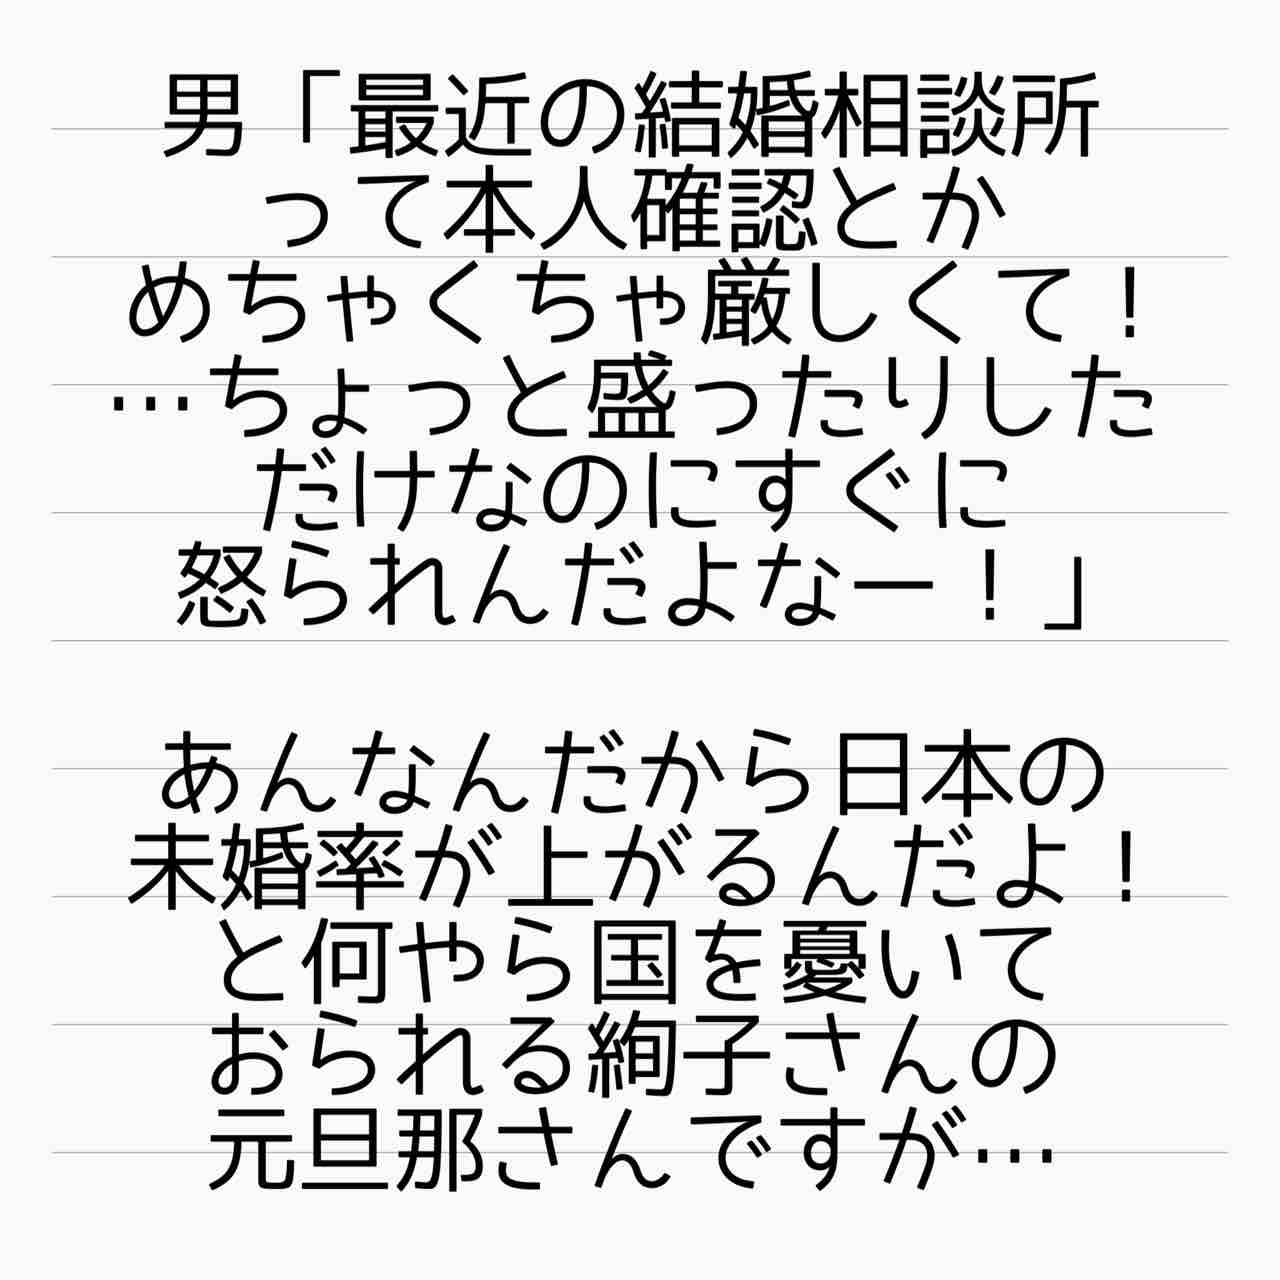 男「最近の結婚相談所
って本人確認とか
めちゃくちゃ厳しくて！
…ちょっと盛ったりした
だけなのにすぐに
怒られんだよなー！」
あんなんだから日本の
未婚率が上がるんだよ！
と何やら国を憂いて
おられる絢子さんの
元旦那さんですが…